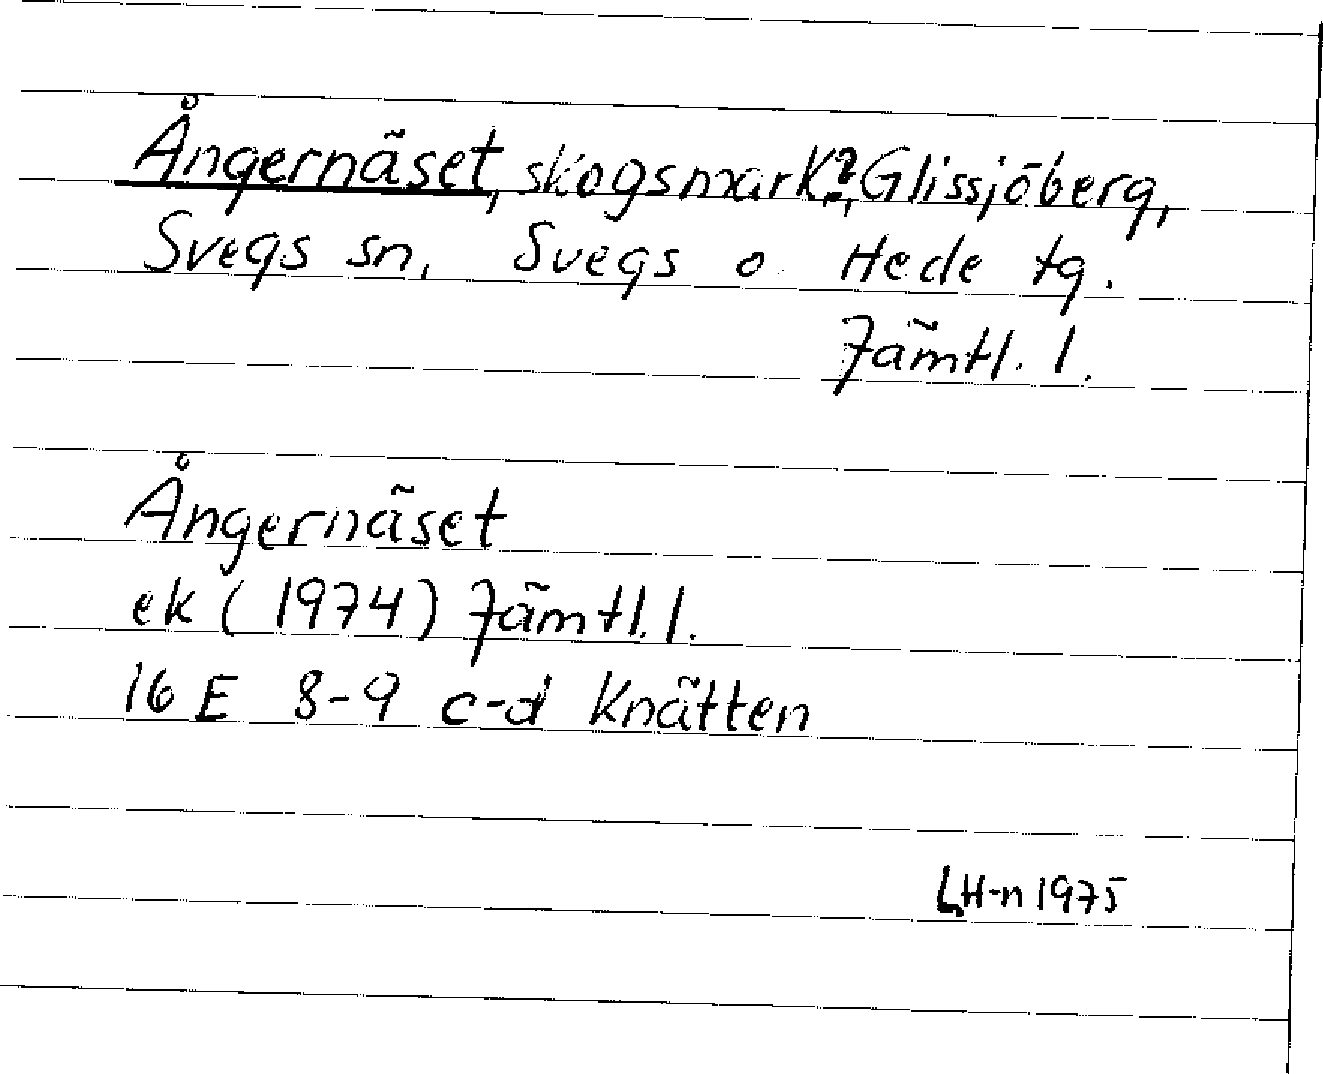 Ångernäset, skogsmark?, Glissjöberg,
Svegs sn, Svegs o Hede tg.
Jämtl. l.
Ångernäset
ek (1974) Jämtl. l.
16 E 8-9 c-d Knätten
LH-n 1975